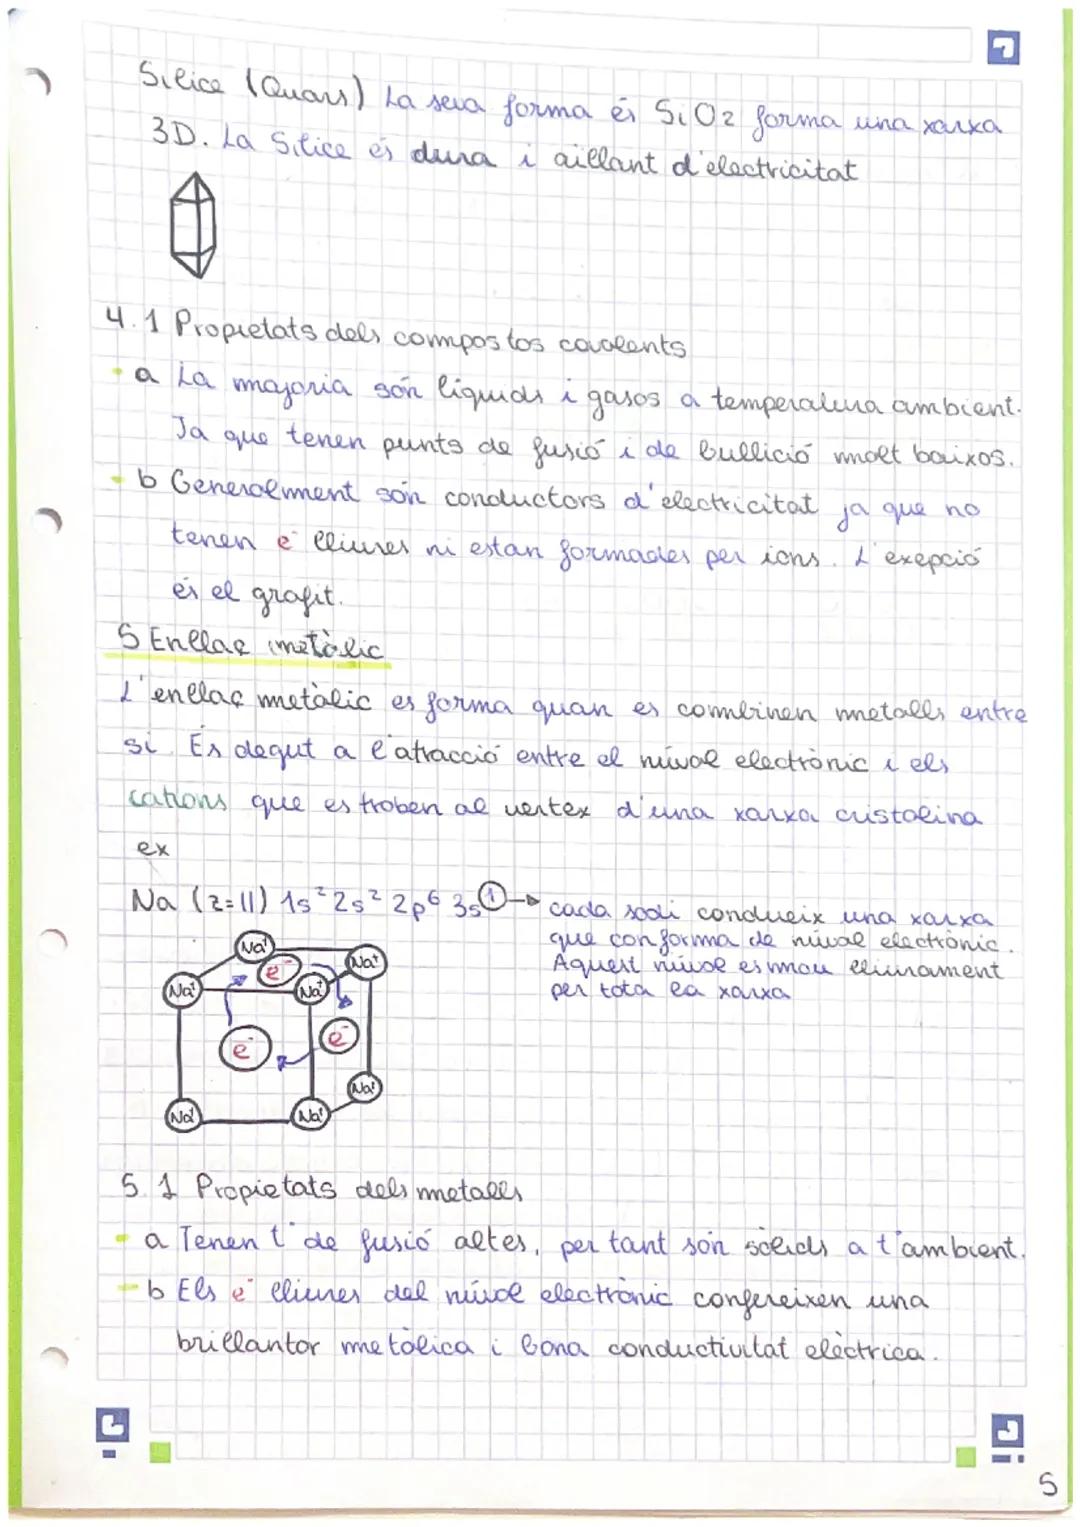 Silice (Quars) La seva forma és SiO2 forma una xarxa
3D. La Silice és dura i aillant d'electricitat
4.1 Propietats dels compostos covalents
a La majoria són líquids i gasos a temperatura ambient.
Ja que tenen punts de fusió i de bullició molt baixos.
b Generalment són conductors d'electricitat ja que no
tenen e⁻ lliures ni estan formades per ions. L'exepció
és el grafit.
5 Enllaç metàlic
L'enllaç metàlic es forma quan es combinen metalls entre
si. És degut a l'atracció entre el núvol electrònic i els
cations que es troben al vertex d'una xarxa cristalina
ex
Na (z=11) 1s² 2s² 2p⁶ 3s① → cada sodi condueix una xarxa
que conforma de núvol electrònic.
Aquest núvol es mou lliurament
per tota la xarxa
Na⁺
e⁻
Na⁺
Na⁺
Na⁺
e⁻
e⁻
Na⁺
Na⁺
Na⁺
5.1 Propietats dels metalls
a Tenen t° de fusió altes, per tant són sòlids a t°ambient.
b Els e⁻ lliures del núvol electrònic confereixen una
brillantor metàlica i bona conductivitat elèctrica.
5